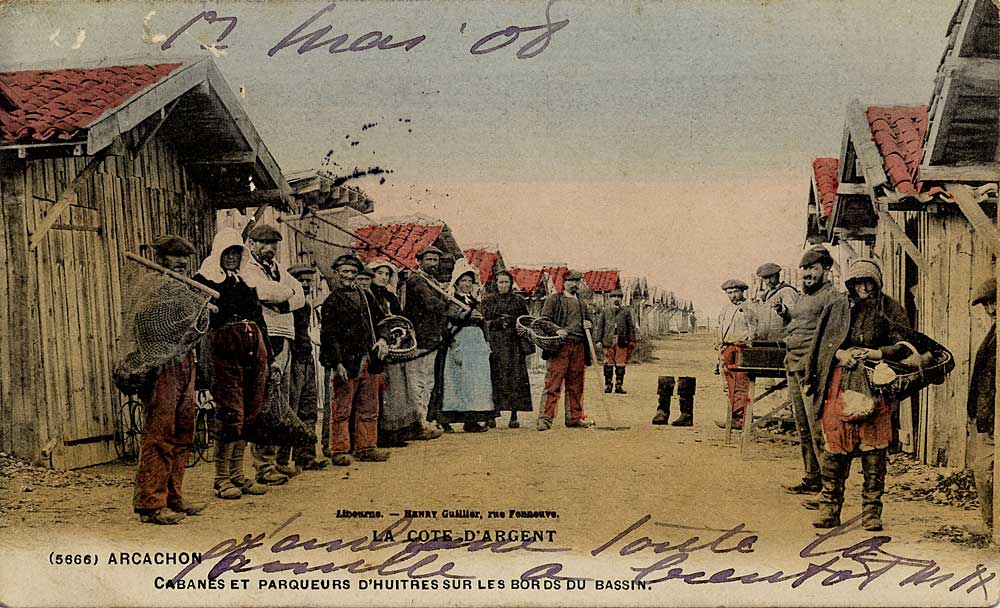 17 mai '08
Libourne. — HENRY Guillier, rue Fonneuve.
LA COTE D'ARGENT
(5666) ARCACHON
toute la
famille a bientôt
CABANES ET PARQUEURS D'HUITRES SUR LES BORDS DU BASSIN.